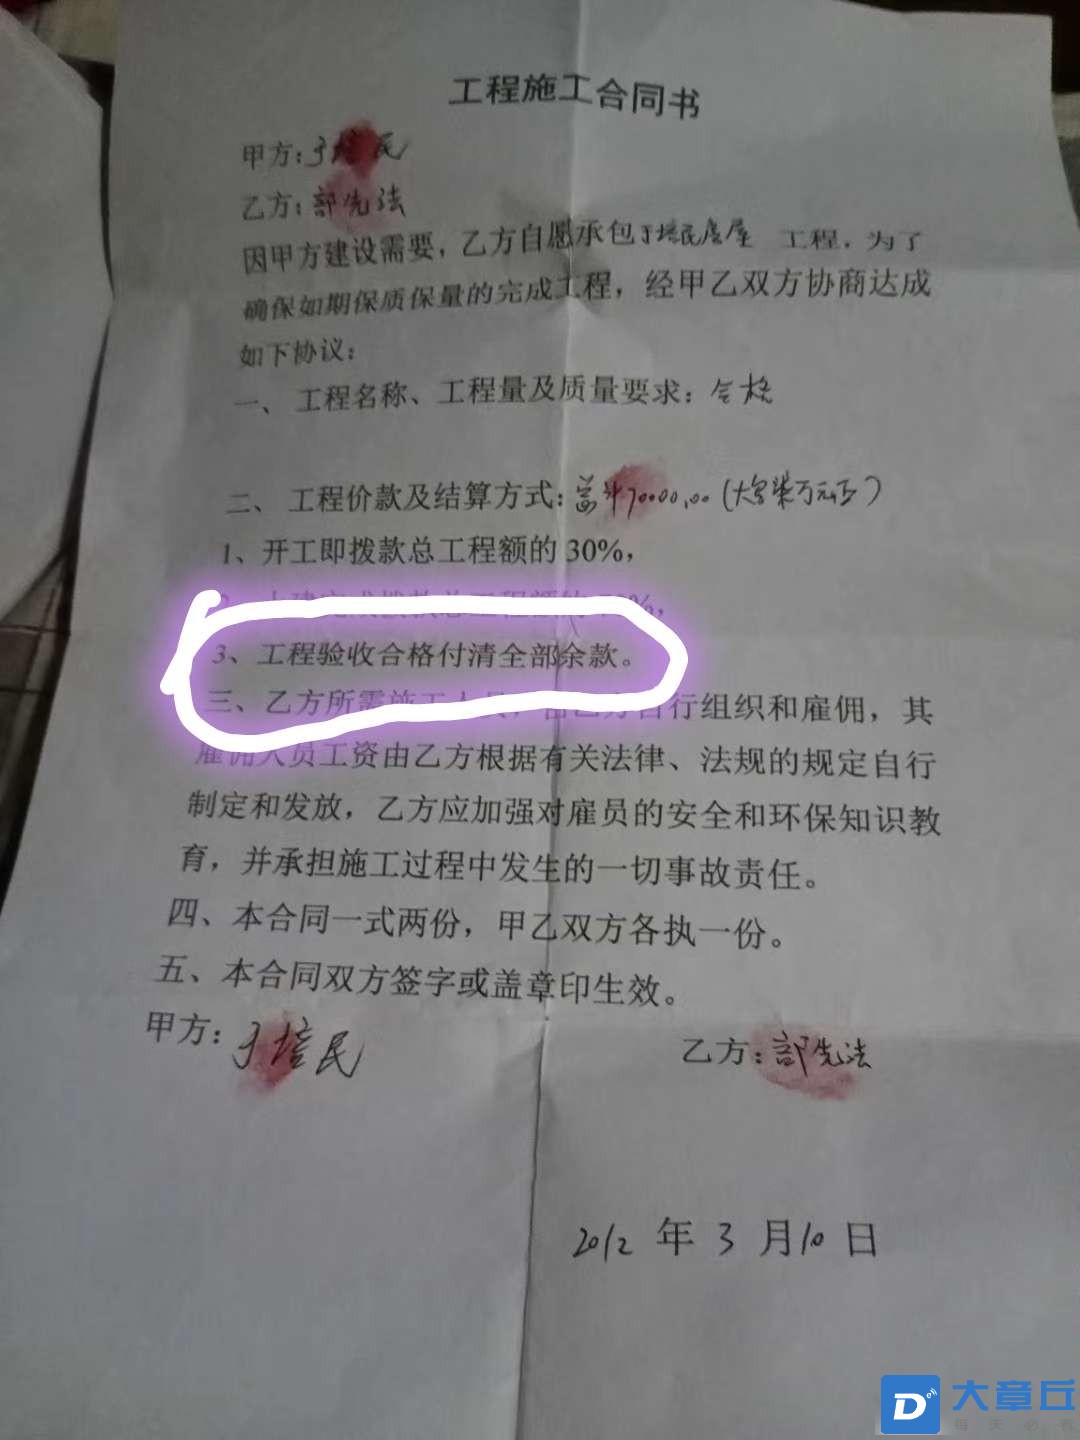 工程施工合同书
甲方：于培民
乙方：部先法
因甲方建设需要，乙方自愿承包于培民房屋 工程，为了
确保如期保质保量的完成工程，经甲乙双方协商达成
如下协议：
一、 工程名称、工程量及质量要求：合格
二、 工程价款及结算方式：70000.00（大写柒万元正）
1、开工即拨款总工程额的 30%，
2、土建完成拨款总工程额的
3、工程验收合格付清全部余款。
三、乙方所需施工人员，由乙方自行组织和雇佣，其
雇佣人员工资由乙方根据有关法律、法规的规定自行
制定和发放，乙方应加强对雇员的安全和环保知识教
育，并承担施工过程中发生的一切事故责任。
四、本合同一式两份，甲乙双方各执一份。
五、本合同双方签字或盖章印生效。
甲方：于培民 乙方：部先法
2012 年 3 月 10 日
大章丘
每天必看